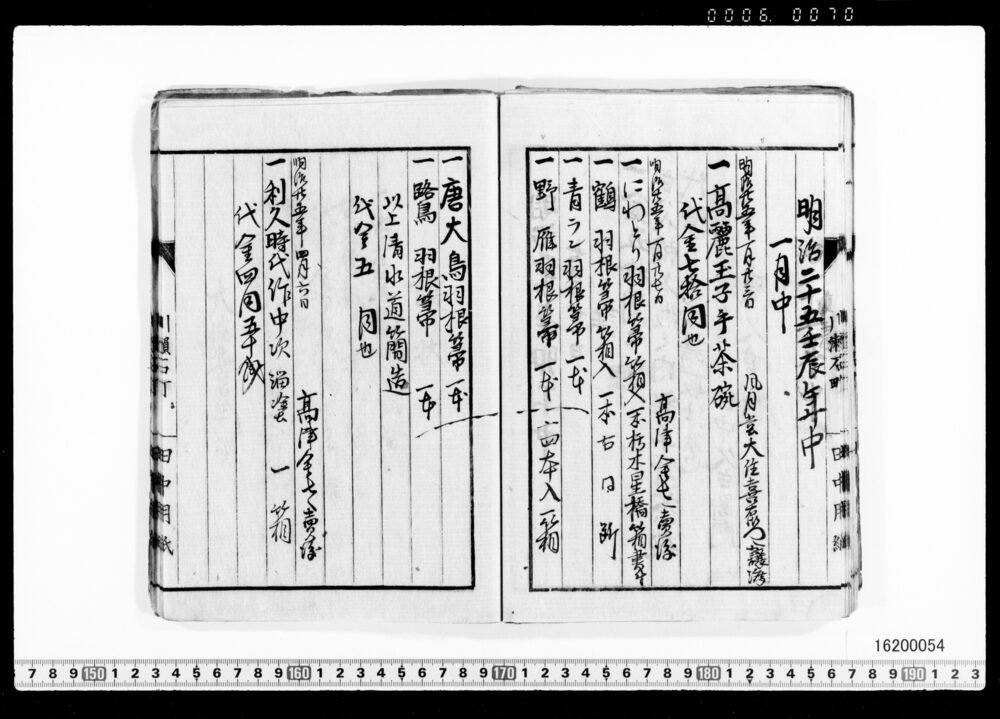 0006. 0070
明治二十五壬辰年中
一月中
明治廿五年一月廿三日 風月堂大住喜右衛門へ譲渡
一高麗玉子手茶碗
代金七拾円也
明治廿五年一月廿七日 高津金七へ売渡
一にわとり羽根箒箱入 一本 栃木星橋箱書付
一鶴 羽根箒箱入 一本 右 同 断
一青ラン羽根箒 一本
一野雁羽根箒 一本 〆四本入一箱
一唐大鳥羽根箒 一本
一鷺 羽根箒 一本
以上清水道簡造
代金五 円也
明治廿五年四月六日 高津金七へ売渡
一利久時代作中次溜塗 一箱
代金四円五十銭
田中用紙
田中用紙
16200054
7 8 9 150 1 2 3 4 5 6 7 8 9 160 1 2 3 4 5 6 7 8 9 170 1 2 3 4 5 6 7 8 9 180 1 2 3 4 5 6 7 8 9 190 1 2 3